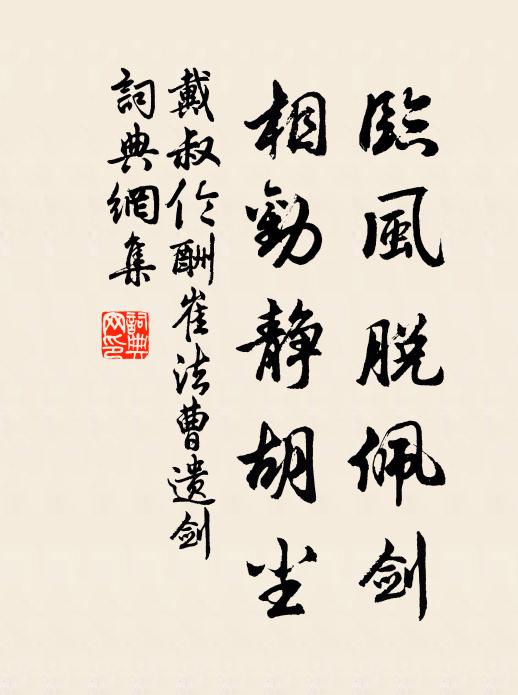 臨風脫佩劍
相勸靜胡塵
戴叔倫酬崔法曹遺劍
詞典網集
詞典
网印